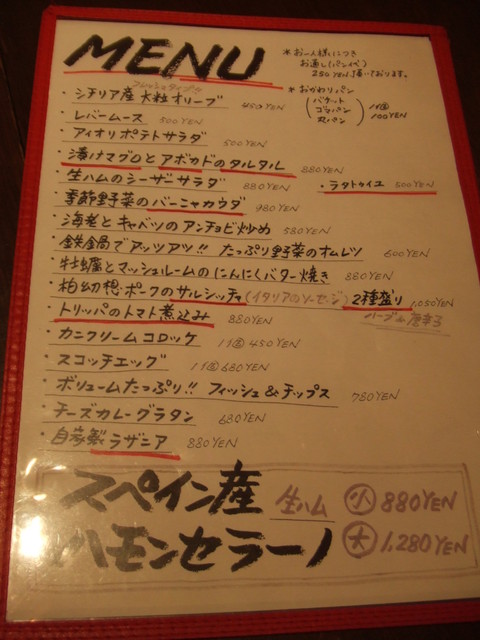 MENU
*お一人様につき
お通し(パン代)
250YEN頂いております。
*おかわりパン
(バケット
ゴマパン
丸パン)
1コ
100YEN
フレッシュタイプ
・シチリア産 大粒オリーブ 450YEN
・レバームース 500YEN
・アイオリポテトサラダ 500YEN
・漬けマグロとアボカドのタルタル 880YEN
・生ハムのシーザーサラダ 880YEN
・ラタトゥイユ 500YEN
・季節野菜のバーニャカウダ 980YEN
・海老とキャベツのアンチョビ炒め 580YEN
・鉄鍋でアッツアツ!! たっぷり野菜のオムレツ 600YEN
・牡蠣とマッシュルームのにんにくバター焼き 880YEN
・柏幻想ポークのサルシッチャ(イタリアのソーセージ) 2種盛り 1,050YEN
ハーブ&唐辛子
・トリッパのトマト煮込み 880YEN
・カニクリームコロッケ 1コ 450YEN
・スコッチエッグ 1コ 680YEN
・ボリュームたっぷり!! フィッシュ&チップス 780YEN
・チーズカレーグラタン 680YEN
・自家製ラザニア 880YEN
スペイン産 生ハム 小 880YEN
ハモンセラーノ 大 1,280YEN